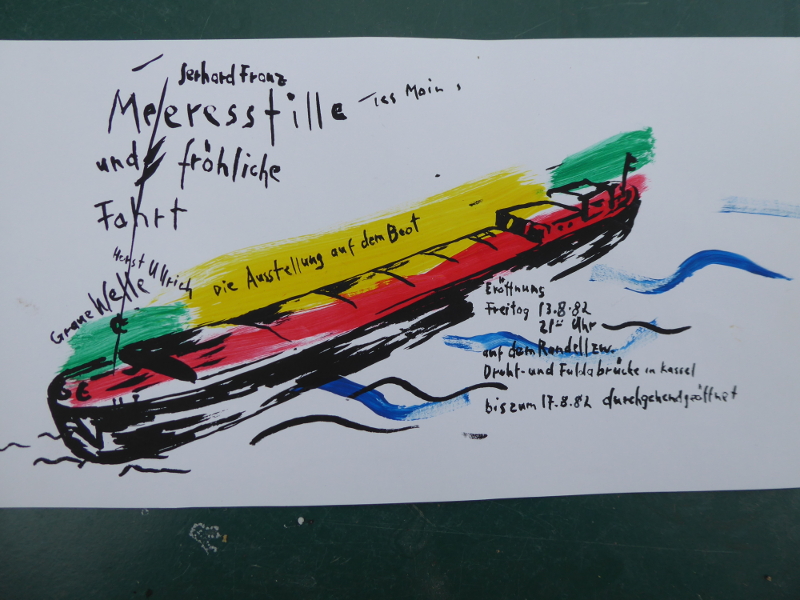 Gerhard Franz
Meeresstille
und fröhliche
Fahrt
Horst Ullrich
Graue Welle
Die Ausstellung auf dem Boot
Eröffnung
Freitag 13.8.82
21°° Uhr
auf dem Rondell zw.
Draht- und Fuldabrücke in Kassel
bis zum 17.8.82 durchgehend geöffnet